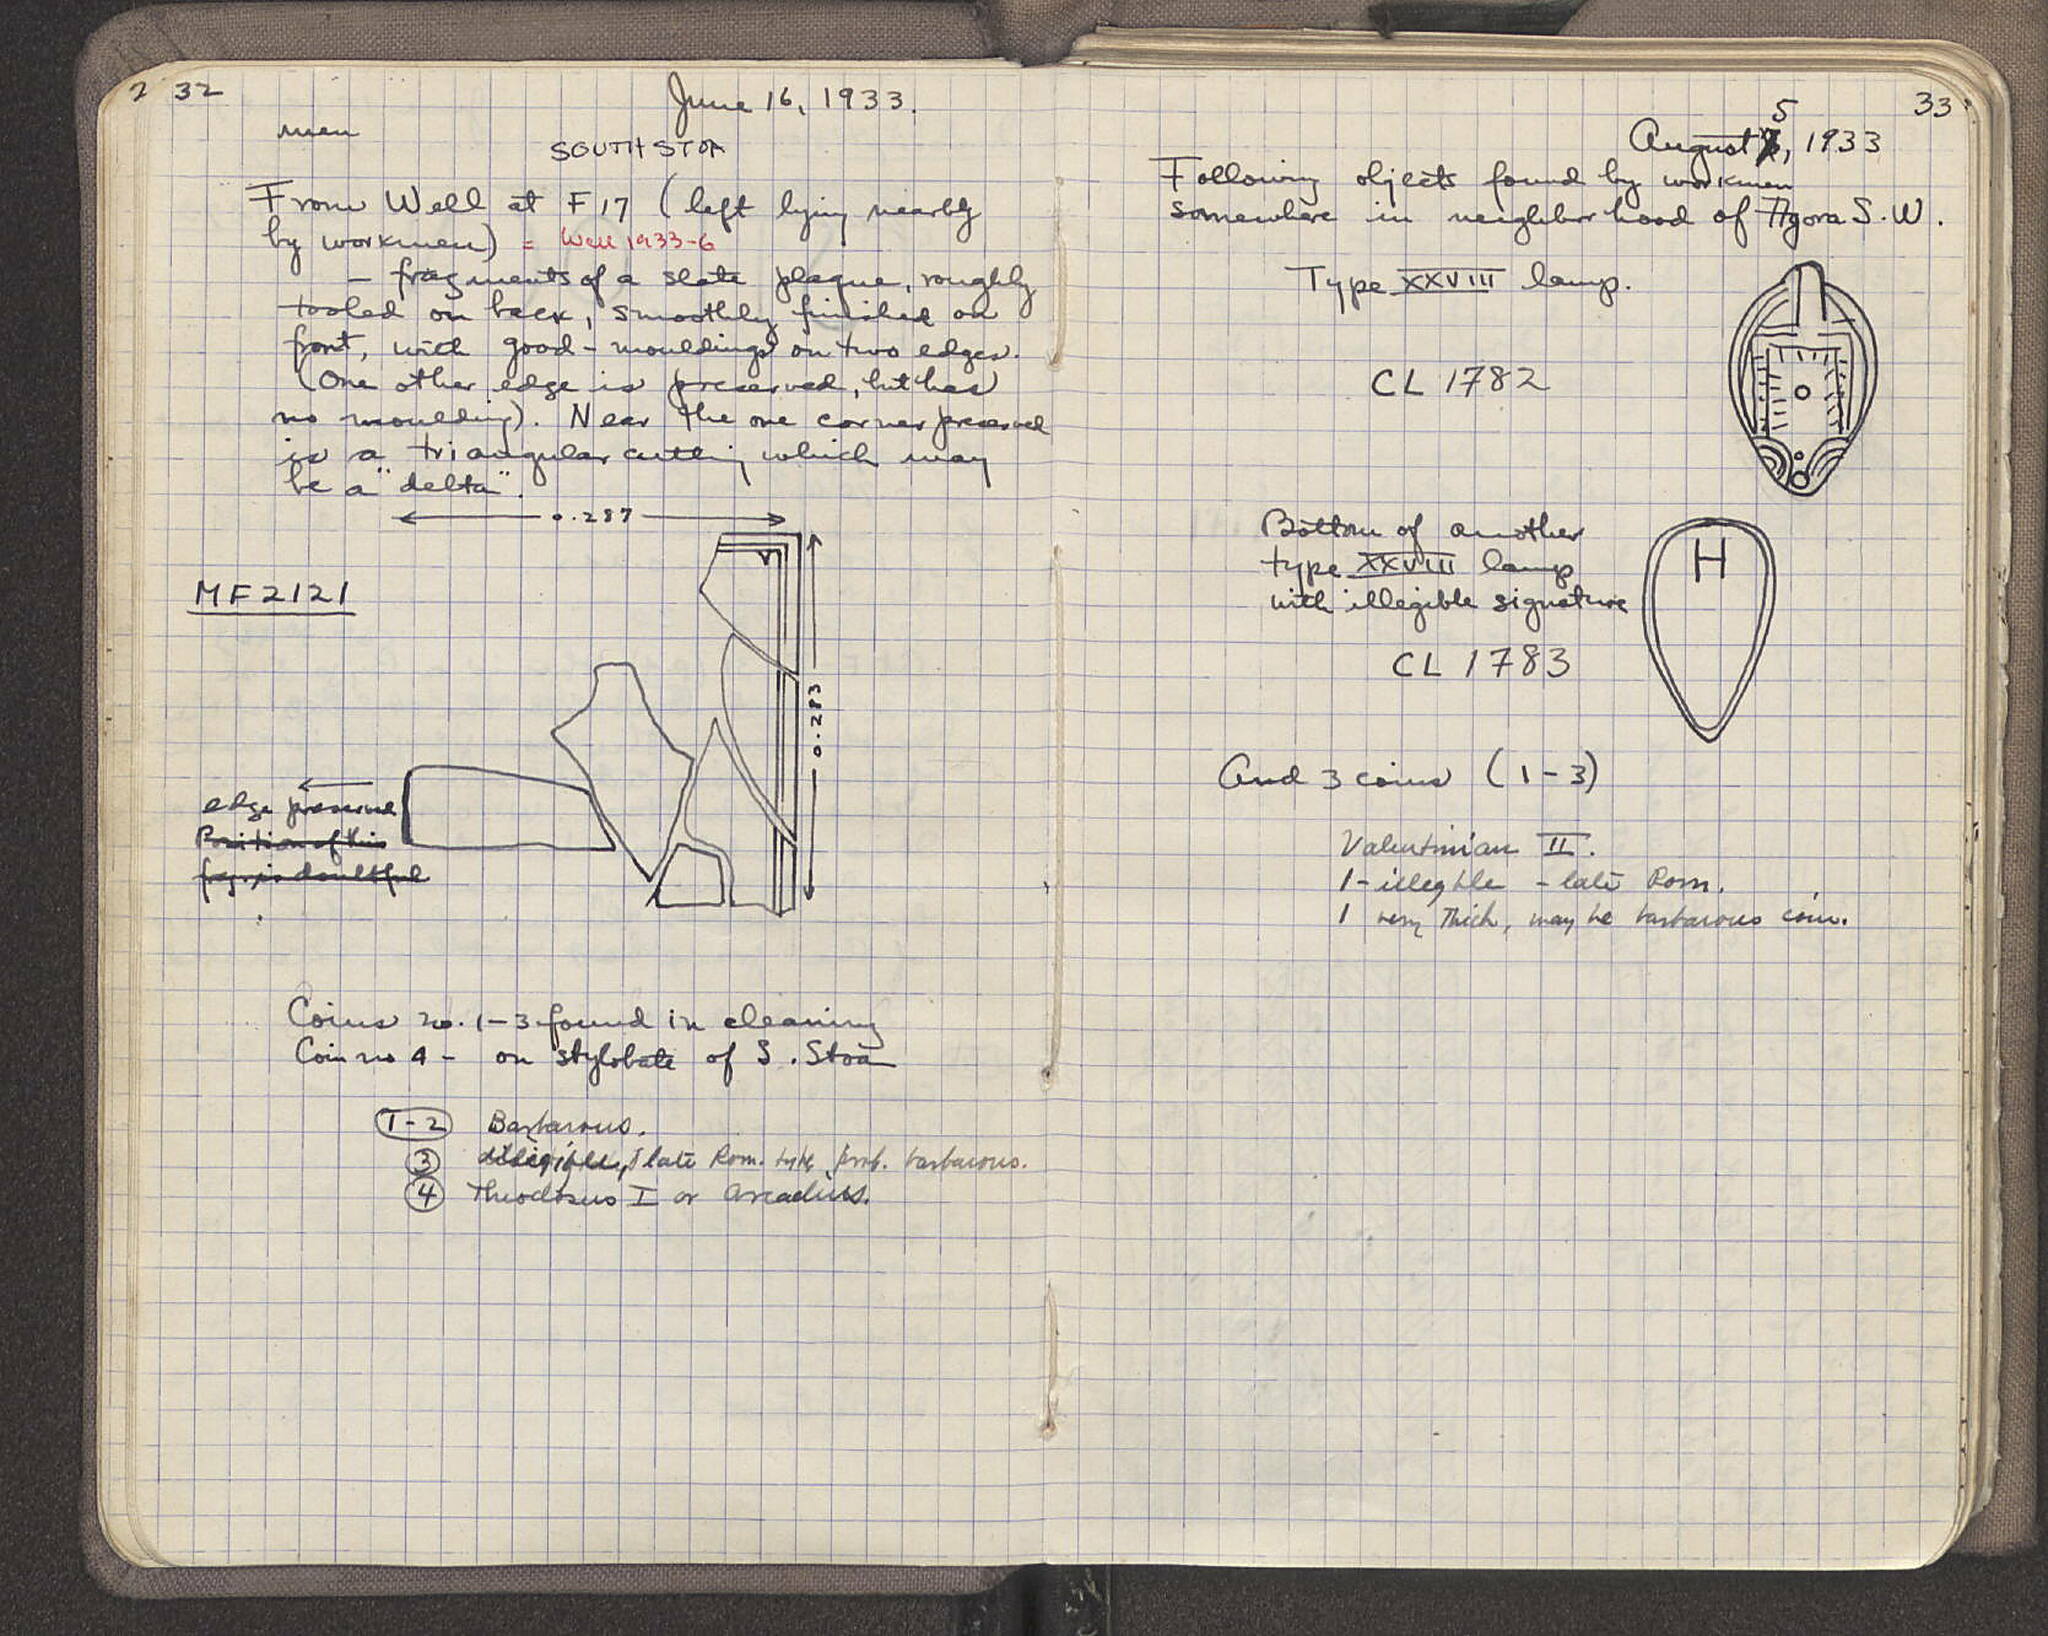 2 32
June 16, 1933.
men
SOUTH STOA
From Well at F 17 (left lying nearby
by workmen) = Well 1933-6
- fragments of a slate plaque, roughly
tooled on back, smoothly finished on
front, with good mouldings on two edges.
(One other edge is preserved, but has
no moulding). Near the one corner preserved
is a triangular cutting which may
be a "delta".
0.287
MF 2121
0.283
edge preserved
Position of this
frg. is doubtful
Coins no. 1-3 found in cleaning
Coin no 4 - on stylobate of S. Stoa
1-2 Barbarous.
3 illegible, late Rom. type, prob. barbarous.
4 Theodosius I or Arcadius.
33
5
August, 1933
Following objects found by workmen
somewhere in neighborhood of Agora S.W.
Type XXVIII lamp.
CL 1782
Bottom of another
type XXVIII lamp
with illegible signature
H
CL 1783
And 3 coins (1-3)
Valentinian II.
1 - illegible - late Rom.
1 very thick, may be barbarous coin.